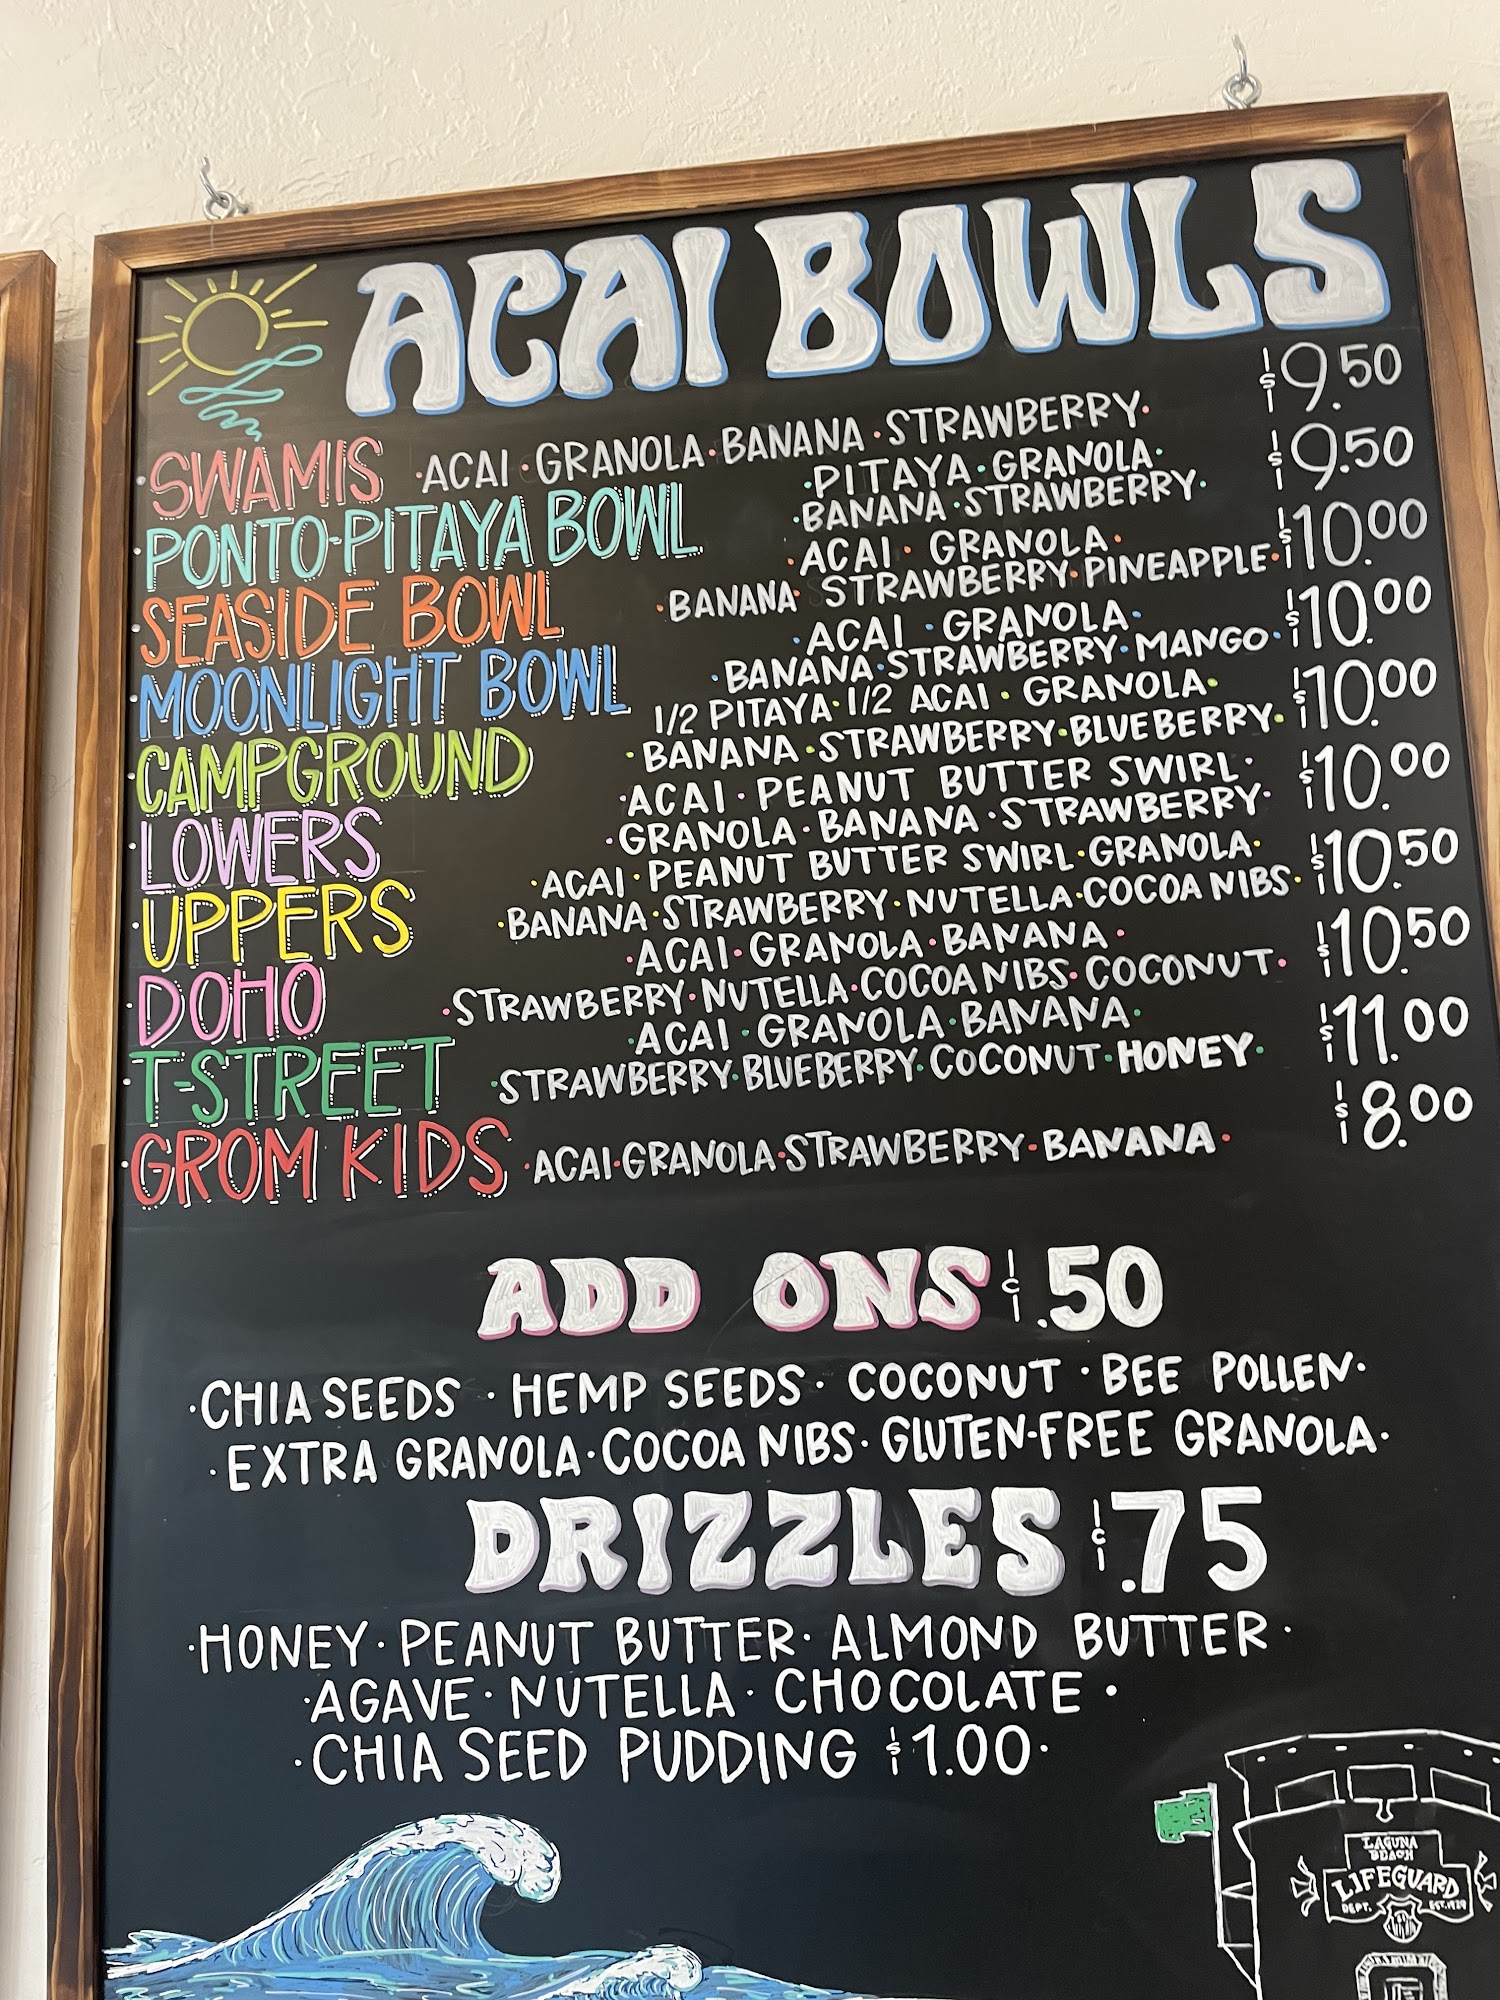 ACAI BOWLS
SWAMIS ·ACAI·GRANOLA·BANANA·STRAWBERRY· $9.50
·PONTO-PITAYA BOWL ·PITAYA·GRANOLA· $9.50
·BANANA·STRAWBERRY·
SEASIDE BOWL ·ACAI· GRANOLA· $10.00
·BANANA· STRAWBERRY·PINEAPPLE·
MOONLIGHT BOWL ·ACAI ·GRANOLA· $10.00
·BANANA·STRAWBERRY·MANGO·
·CAMPGROUND 1/2 PITAYA·1/2 ACAI· GRANOLA· $10.00
·BANANA·STRAWBERRY·BLUEBERRY·
·LOWERS ·ACAI·PEANUT BUTTER SWIRL· $10.00
·GRANOLA·BANANA·STRAWBERRY·
·UPPERS ·ACAI·PEANUT BUTTER SWIRL·GRANOLA· $10.50
·BANANA·STRAWBERRY·NUTELLA·COCOA NIBS·
·DOHO ·ACAI·GRANOLA·BANANA· $10.50
·STRAWBERRY·NUTELLA·COCOA NIBS·COCONUT·
·T-STREET ·ACAI·GRANOLA·BANANA· $11.00
·STRAWBERRY·BLUEBERRY·COCONUT·HONEY·
·GROM KIDS ·ACAI·GRANOLA·STRAWBERRY·BANANA· $8.00
ADD ONS ¢.50
·CHIA SEEDS ·HEMP SEEDS· COCONUT ·BEE POLLEN·
·EXTRA GRANOLA·COCOA NIBS·GLUTEN-FREE GRANOLA·
DRIZZLES ¢.75
·HONEY·PEANUT BUTTER·ALMOND BUTTER·
·AGAVE·NUTELLA·CHOCOLATE·
·CHIA SEED PUDDING $1.00·
LAGUNA
BEACH
LIFEGUARD
DEPT. EST.1929